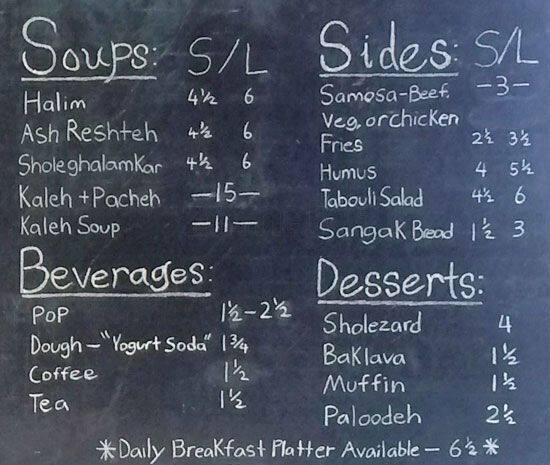 Soups: S/L
Halim 4½ 6
Ash Reshteh 4½ 6
Sholeghalamkar 4½ 6
Kaleh + Pacheh —15—
Kaleh Soup —11—
Sides: S/L
Samosa-Beef. —3—
Veg. or chicken
Fries 2½ 3½
Humus 4 5½
Tabouli Salad 4½ 6
Sangak Bread 1½ 3
Beverages:
Pop 1½-2½
Dough-"Yogurt Soda" 1¾
Coffee 1½
Tea 1½
Desserts:
Sholezard 4
Baklava 1½
Muffin 1½
Paloodeh 2½
*Daily Breakfast Platter Available - 6½*